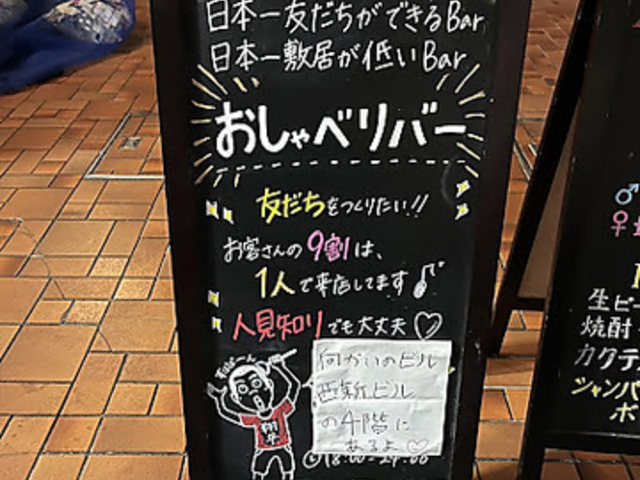 日本一友だちができるBar
日本一敷居が低いBar
おしゃべリバー
友だちをつくりたい!!
お客さんの9割は、
1人で来店してます♪
人見知りでも大丈夫♡
向かいのビル
西新ビル
の4階に
あるよ♡
18:00-24:00
♂
♀
生ビ
焼酎
カクテ
シャンパ
ボ